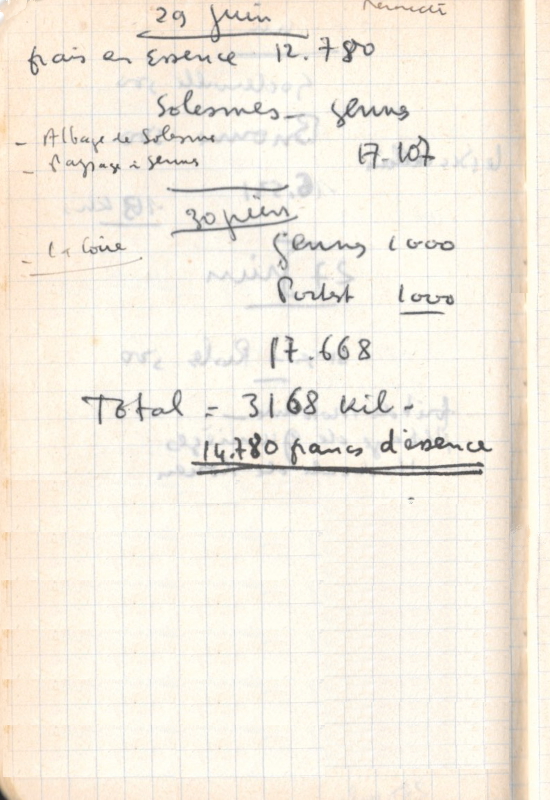 29 Juin
frais en Essence 12.780
Solesmes - Gennes
- Abbaye de Solesmes
- Paysage à Gennes
17.107
30 juin
- La Loire
Gennes 1000
1000
17.668
Total = 3168 Kil -
14.780 francs d'essence